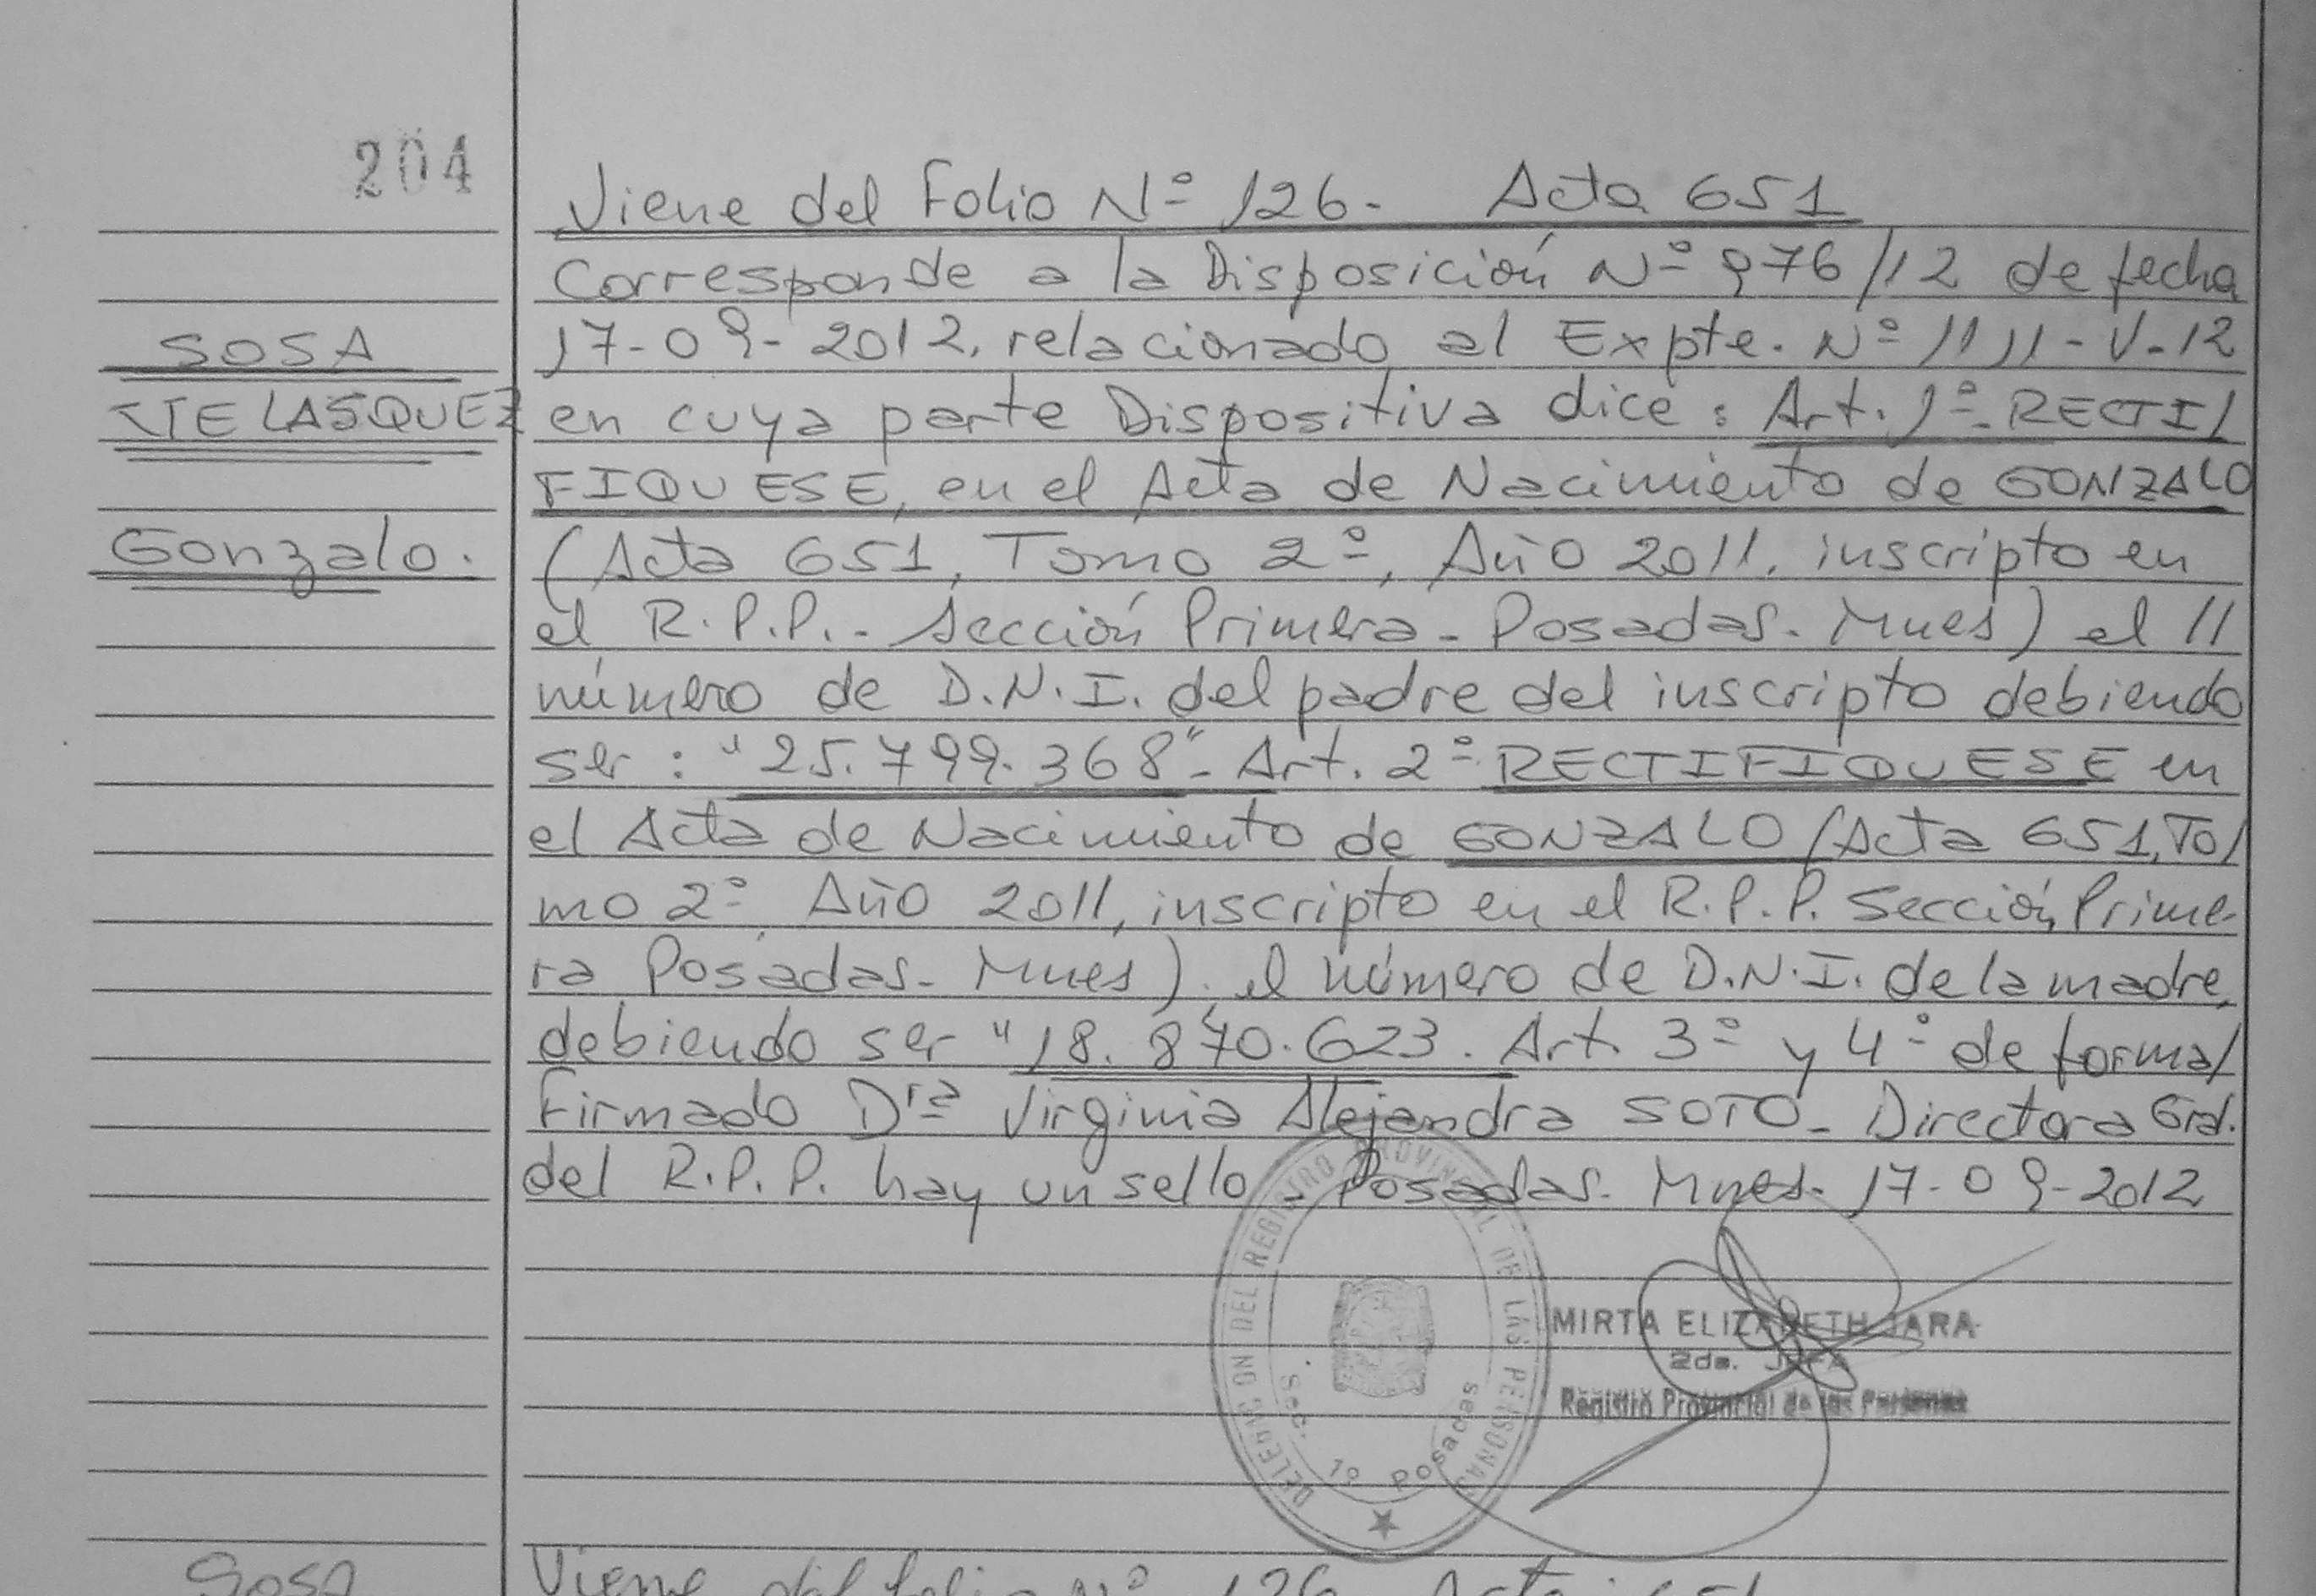 204
Viene del Folio Nº 126. Acta 651
Corresponde a la Disposición Nº 976/12 de fecha
SOSA
17-09-2012, relacionado al Expte. Nº 1111-V-12
VELASQUEZ
en cuya parte Dispositiva dice: Art. 1º- RECTI/
FIQUESE, en el Acta de Nacimiento de GONZALO
Gonzalo.
(Acta 651, Tomo 2º, Año 2011, inscripto en
el R.P.P.- Sección Primera - Posadas. Mnes) el //
número de D.N.I. del padre del inscripto debiendo
ser: "25.799.368"- Art. 2º RECTIFIQUESE en
el Acta de Nacimiento de GONZALO (Acta 651, To/
mo 2º Año 2011, inscripto en el R.P.P. Sección Prime-
ra Posadas- Mnes) el número de D.N.I. de la madre,
debiendo ser "18.870.623. Art. 3º y 4º de forma/
Firmado Drª Virginia Alejandra SOTO- Directora Gral.
del R.P.P. hay un sello - Posadas. Mnes- 17-09-2012
DELEGACION DEL REGISTRO PROVINCIAL DE LAS PERSONAS
Sec. 1º Posadas
MIRTA ELIZABETH JARA
2da. JEFA
Registro Provincial de las Personas
Sosa
Viene del folio Nº 126 Acta: 651